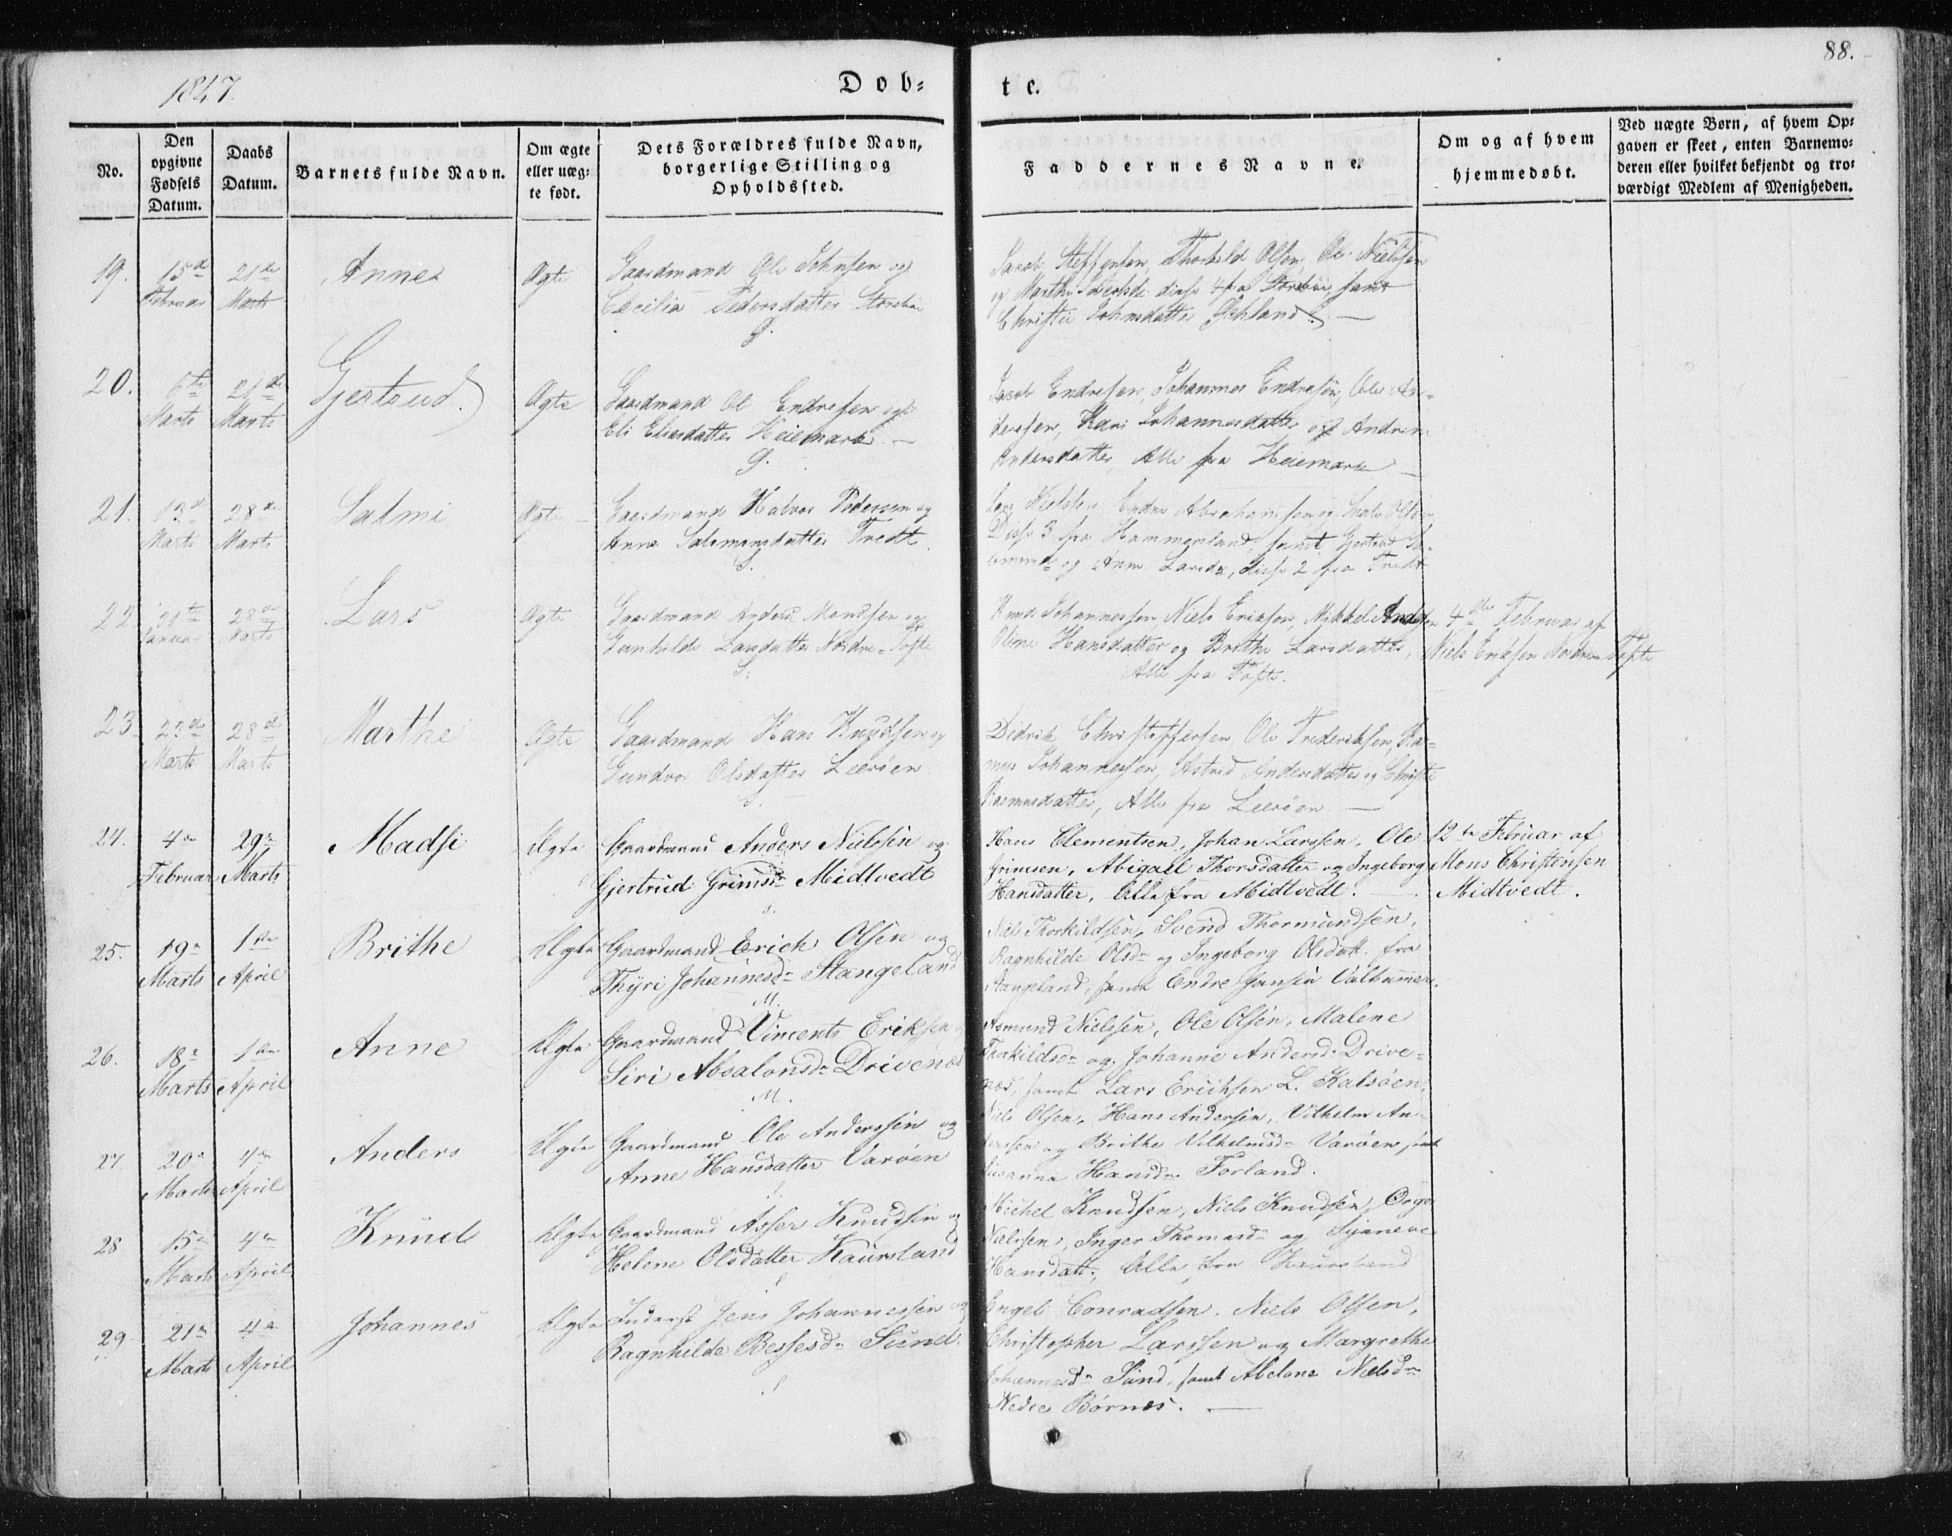 88.
1847.
Dob-
te.
No.
Den opgivne Fødsels Datum.
Daabs Datum.
Barnets fulde Navn.
Om ægte eller uæg-
te født.
Dets Forældres fulde Navn,
borgerlige Stilling og
Opholdssted.
Faddernes Navne.
Om og af hvem
hjemmedøbt.
Ved uægte Børn, af hvem Op-
gaven er skeet, enten Barnemo-
deren eller hvilket bekjendt og tro-
værdigt Medlem af Menigheden.
19. 15de Februar 21de Marts Anne Ægte
Gaardmand Ole Johnsen og
Cecilia Pedersdatter Storebø
G.
Jacob Steffensen, Thorkild Olsen, Ole Nielsen
og Marthe disse 4 fra Storebø samt
Christie Johnsdatter
20. 6te Marts 21de Marts Gjertrud. Ægte
Gaardmand Ole Endresen og
Eli Eliasdatter Heiemark. —
G.
Jacob Endresen, Johannes Endresen, Ole An-
dersen, Kari Johannesdatter og
Andersdatter, Alle fra Heiemark —
21. 13de Marts 28de Marts Salmi Ægte
Gaardmand Halvor Pedersen og
Anna Salamonsdatter Tredt.
Nielsen, Endre Abrahamsen og
Disse 3 fra Hammersland samt Gjertrud
og Anna Larsdr, disse 2 fra Tredt
22 Januar 28de Marts Lars Ægte
Gaardmand Anders Monssen og
Gunhilde Larsdatter Nordre-Tofte
Knud Johannessen, Niels Eriksen, Mikkel Anders
Oline Hansdatter og Brithe Larsdatter,
Alle fra Tofte.
4de Februar af
Niels Eriksen Nordre Tofte
23 23de Marts 28de Marts Marthe Ægte
Gaardmand Hans Knudsen og
Gundvor Olsdatter Leerøen
Didrik Christoffersen, Ole Frederiksen, Ras-
mus Johannessen, Astrid Andersdatter og Christi
Rasmusdatter, Alle fra Leerøen —
24. 4de Februar 29de Marts Madsi Ægte
Gaardmand Anders Nielssen og
Gjertrud Grimsdr Midtvedt
S.
Hans Clementsen, Johan Larssen, Ole
Grimsen, Abigael Thorsdatter og Ingeborg
Hansdatter, Alle fra Midtvedt.
12te Februar af
Mons Christensen
Midtvedt.
25. 19de Marts 1ste April Brithe Ægte
Gaardmand Erich Olsen og
Thyri Johannesdr Stangeland
M.
Niels Thorkildsen, Svend Thormundsen,
Ragnhilde Olsdr og Ingeborg Olsdatt. fra
Stangeland, samt Endre Jansen
26. 18de Marts 1ste April Anne Ægte
Gaardmand Vincents Eriksen
Siri Absalonsdr Drivenæs
M.
Asmund Nielssen, Ole Olsen, Malene
Thorkildsdr og Johanne Andersdr Drive-
næs, samt Lars Eriksen L. Kalsøen.
27. 20de Marts 4de April Anders Ægte
Gaardmand Ole Anderssen og
Anne Hansdatter Varøen
Niels Olsen, Hans Andersen, Vilhelm An-
derssen og Brithe Vilhelmsdr Varøen, samt
Susanna Hansdr Forland.
28 15de Marts 4de April Knud Ægte
Gaardmand Asser Knudsen og
Helene Olsdatter Kaursland
Michel Knudsen, Niels Knudsen,
Nielssen, Inger Thomasdr og Synneve
Hansdatt., Alle fra Kaursland
29. 21de Marts 4de April Johannes Ægte
Inderst Jens Johannessen og
Ragnhilde Bessesdr Sund.
Engel Conradsen, Niels Olsen,
Christopher Larssen og Margrethe
Johannesdr Sund, samt Abelone Nielsdr
Nedre Børnes. —